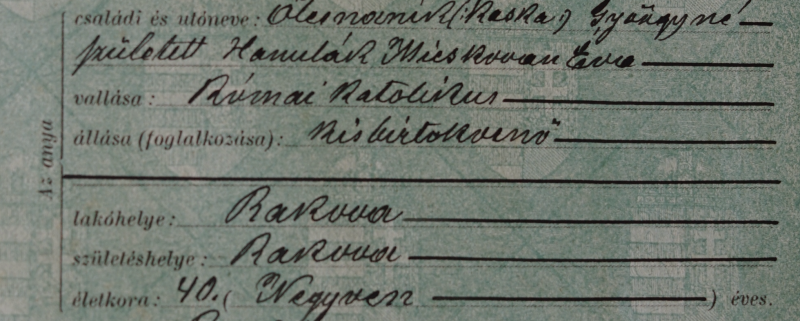 családi és utóneve: Olesnanik (: Kaska :) Györgyné
született Hanulák Micskovan Éva
vallása: Római katolikus
állása (foglalkozása): kisbirtokosnő
Az anya
lakóhelye: Rakova
születéshelye: Rakova
életkora: 40. (Negyven) éves.